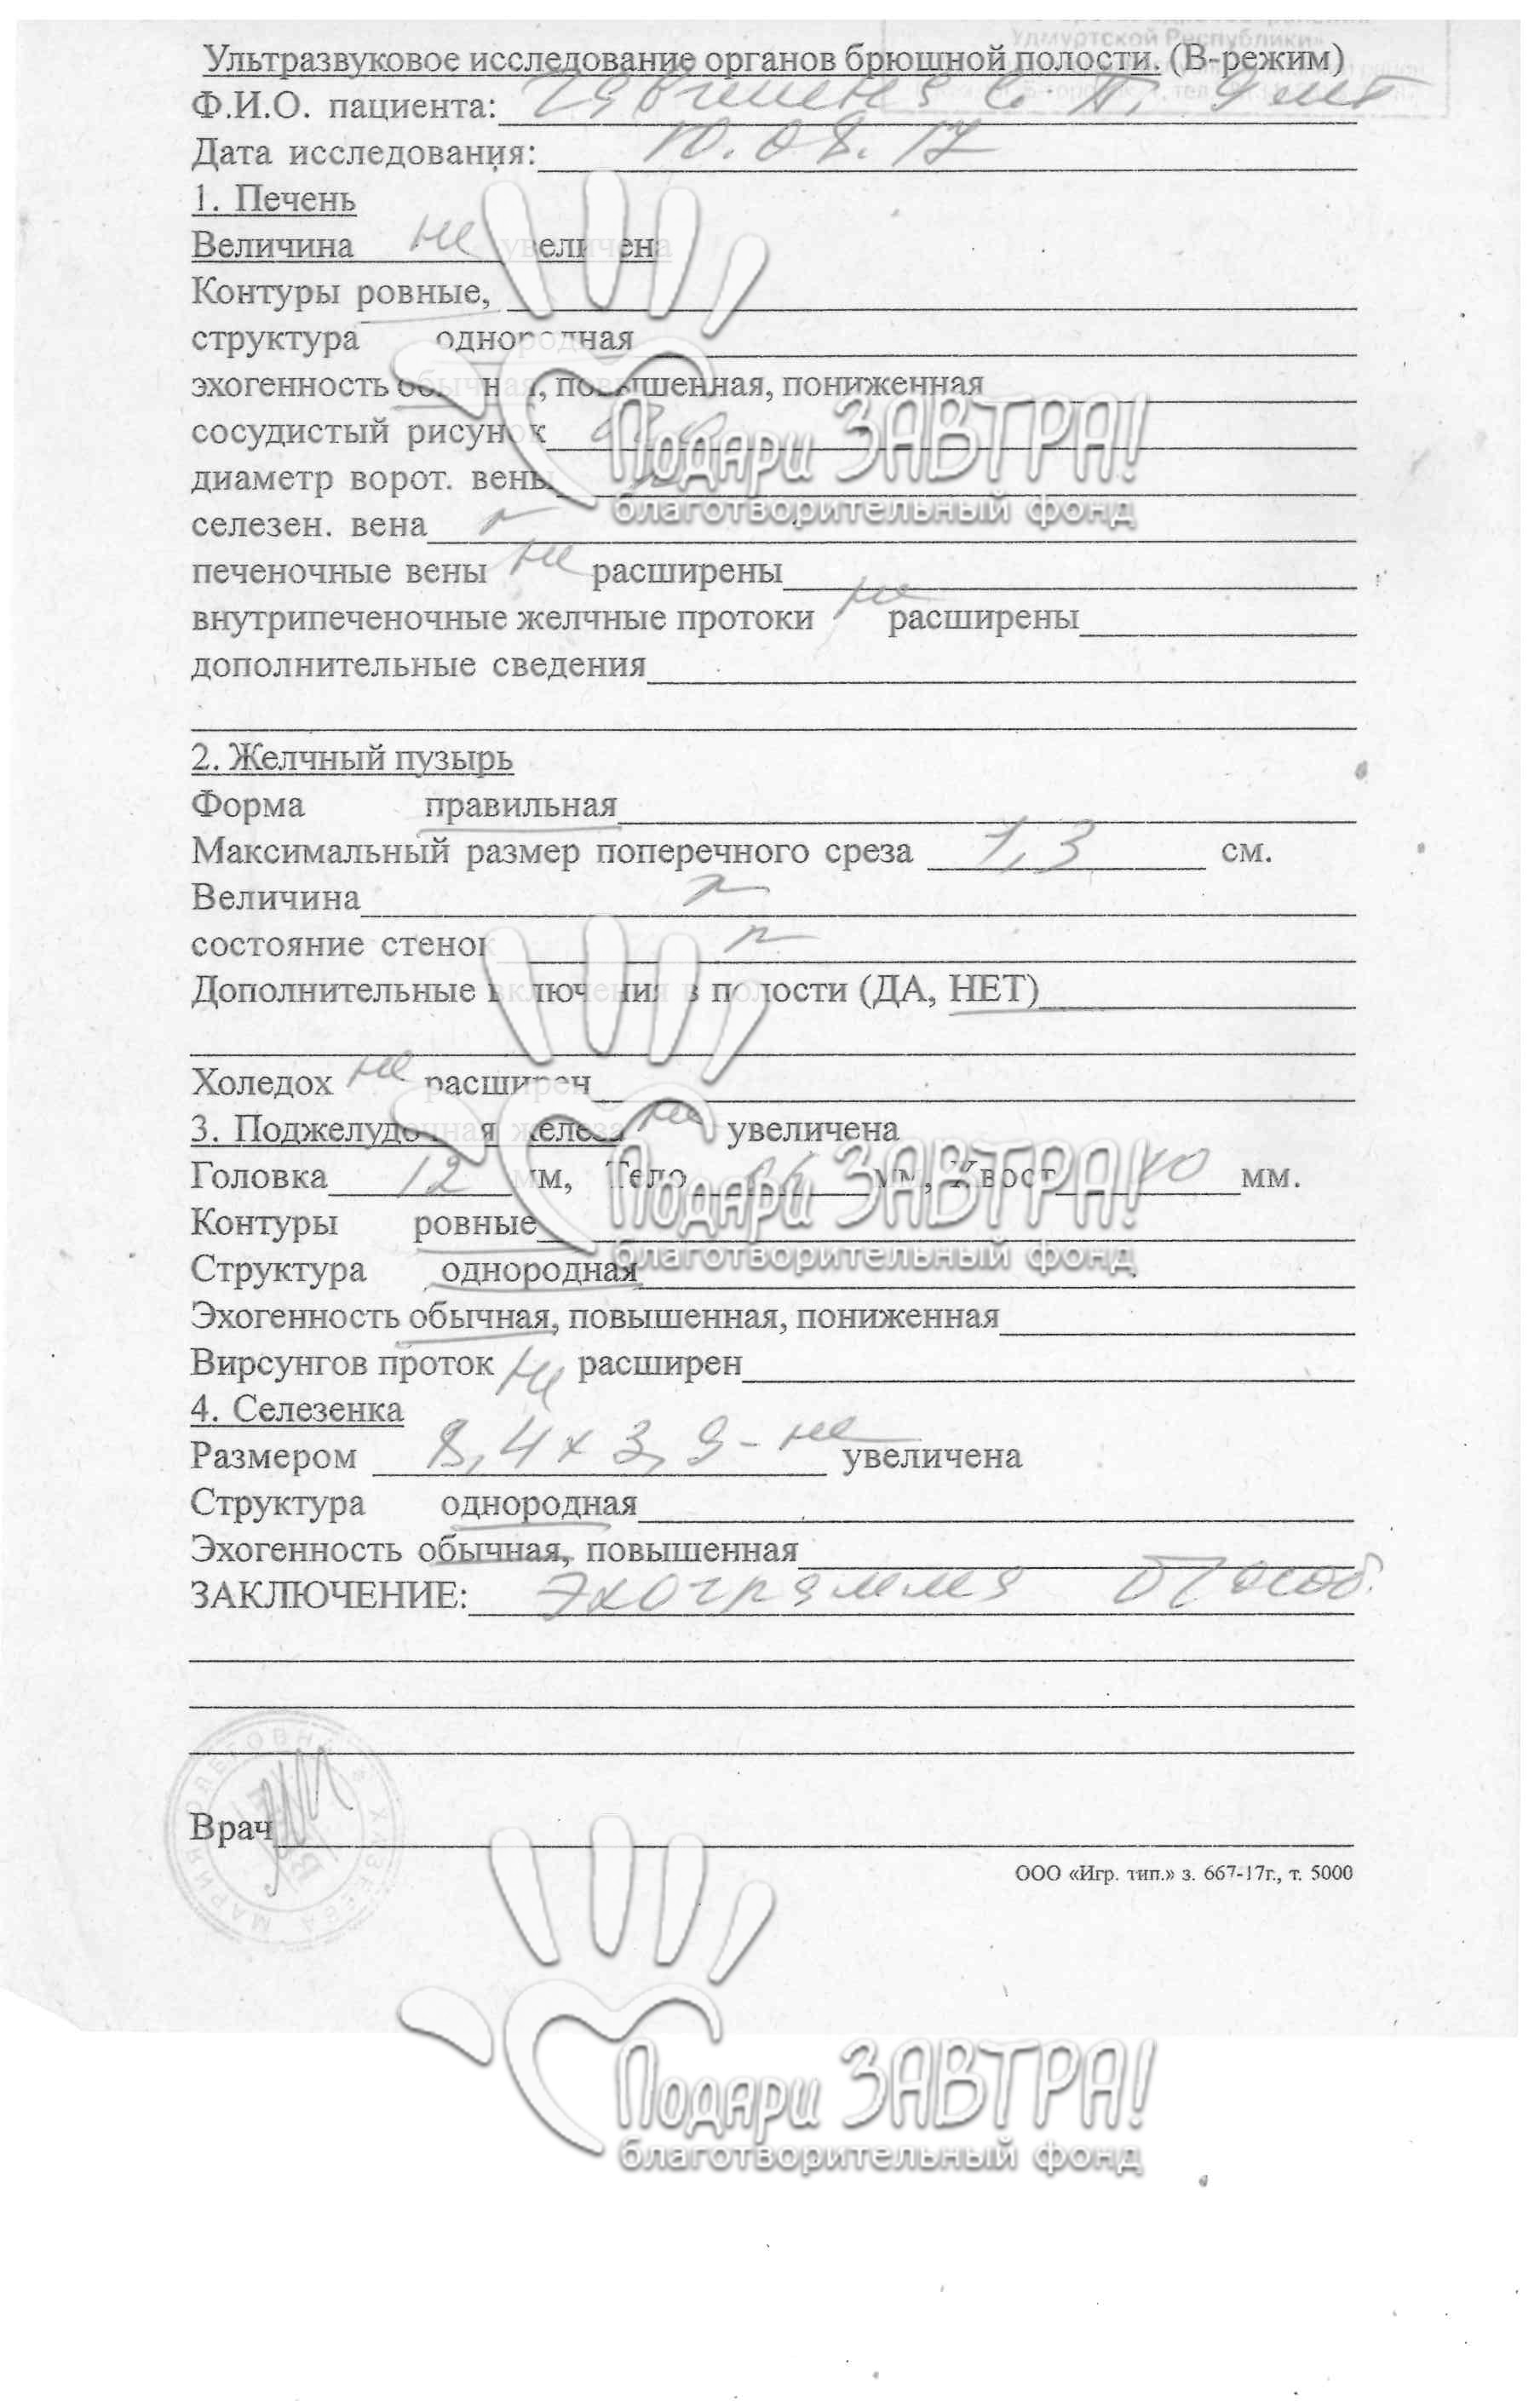 Удмуртской Республики»
Ультразвуковое исследование органов брюшной полости. (В-режим)
Ф.И.О. пациента: С. П. 9 лет
Дата исследования: 10.08.17
1. Печень
Величина не увеличена
Контуры ровные,
структура однородная
эхогенность обычная, повышенная, пониженная
сосудистый рисунок
диаметр ворот. вены
селезен. вена
печеночные вены не расширены
внутрипеченочные желчные протоки не расширены
дополнительные сведения
2. Желчный пузырь
Форма правильная
Максимальный размер поперечного среза 1,3 см.
Величина
состояние стенок
Дополнительные включения в полости (ДА, НЕТ)
Холедох не расширен
3. Поджелудочная железа не увеличена
Головка 12 мм, Тело мм, Хвост 10 мм.
Контуры ровные
Структура однородная
Эхогенность обычная, повышенная, пониженная
Вирсунгов проток не расширен
4. Селезенка
Размером 8,4 х 3,9 - не увеличена
Структура однородная
Эхогенность обычная, повышенная
ЗАКЛЮЧЕНИЕ: Эхограмма б/особ.
Врач
ООО «Игр. тип.» з. 667-17г., т. 5000
Подари ЗАВТРА!
благотворительный фонд
Подари ЗАВТРА!
благотворительный фонд
Подари ЗАВТРА!
благотворительный фонд